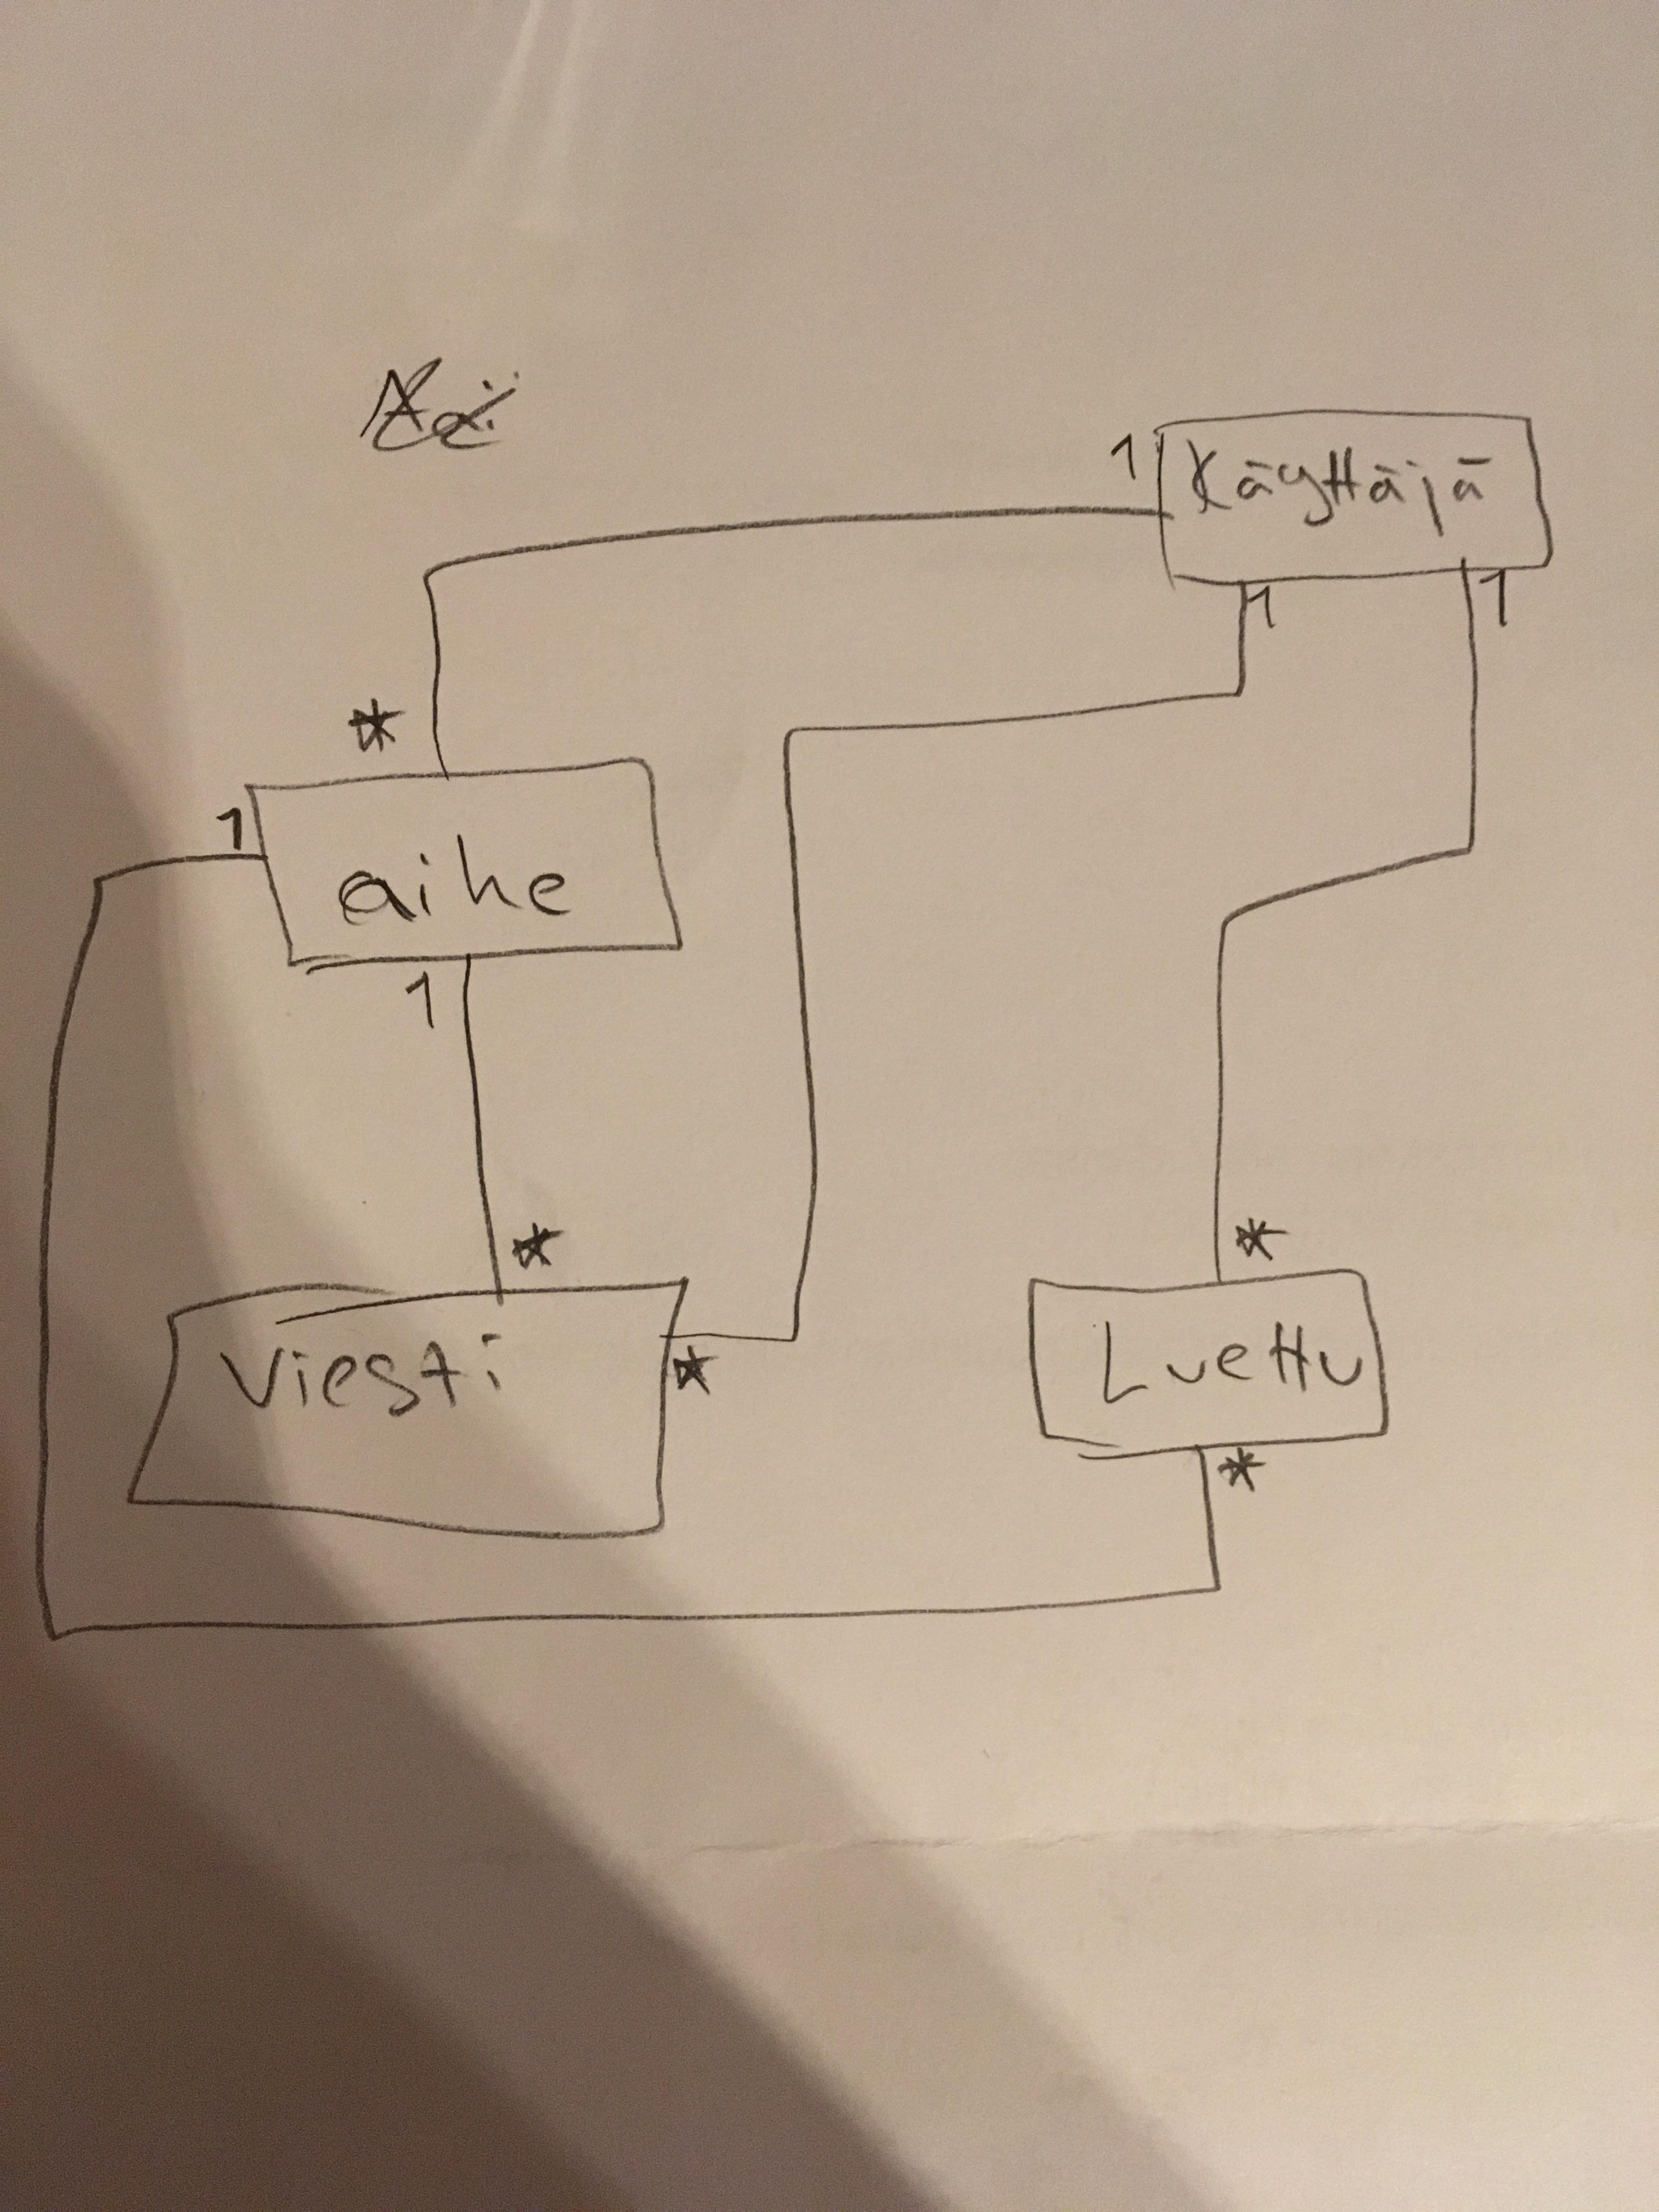 1 Käyttäjä
1 1
*
1
aihe
1
*
*
Viesti
*
Luettu
*